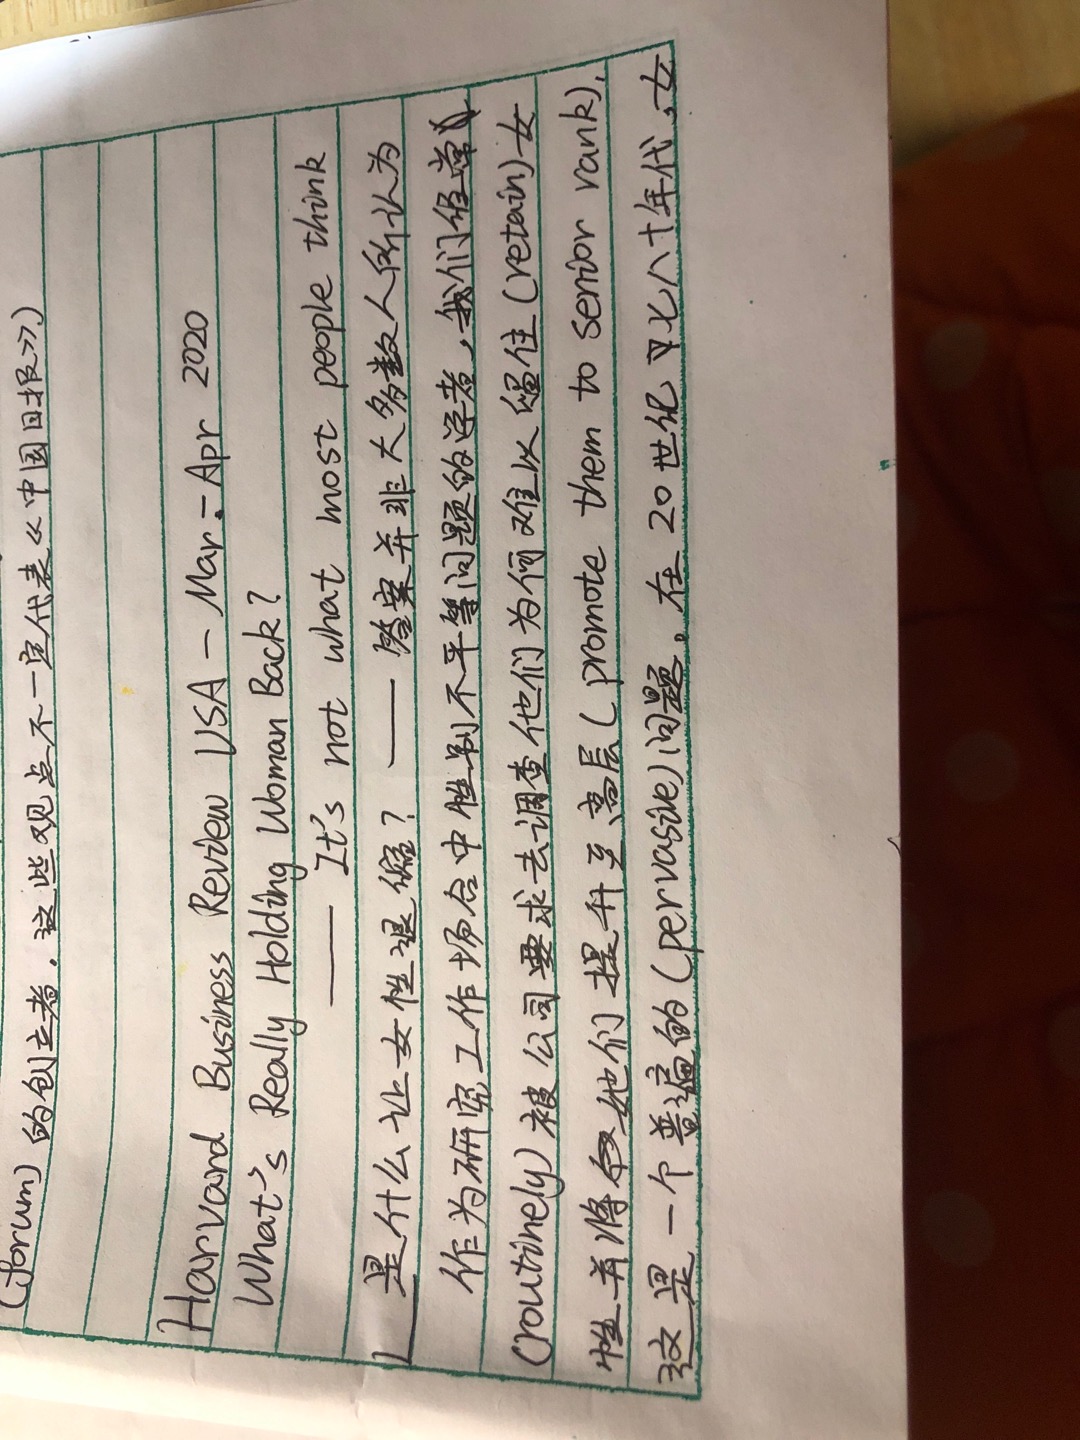 (forum) 的创立者，这些观点不一定代表《中国日报》。)
Harvard Business Review USA — Mar.-Apr 2020
What's Really Holding Woman Back?
—— It's not what most people think
是什么让女性退缩？ —— 答案并非大多数人所认为
作为研究工作场合中性别不平等问题的学者，我们经常
(routinely) 被公司要求去调查他们为何难以留住 (retain) 女
性并将她们提升至高层 (promote them to senior rank),
这是一个普遍的 (pervasive) 问题。在 20 世纪七八十年代，女